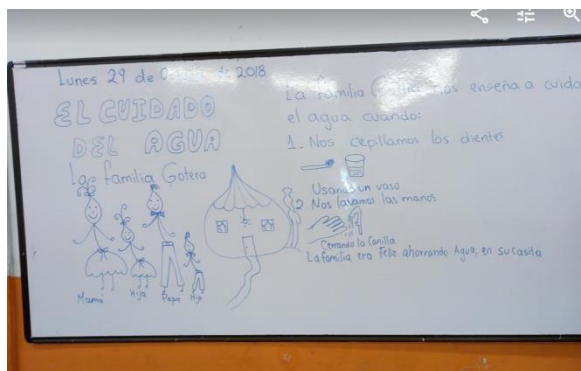 Lunes 29 de Octubre de 2018
EL CUIDADO
DEL AGUA
La familia Gotera
Mamá
Hija
Papá
Hijo
La familia nos enseña a cuida
el agua cuando:
1. Nos cepillamos los dientes
Usando un vaso
2 Nos lavamos las manos
Cerrando la Canilla
La familia era Feliz ahorrando Agua, en su casita